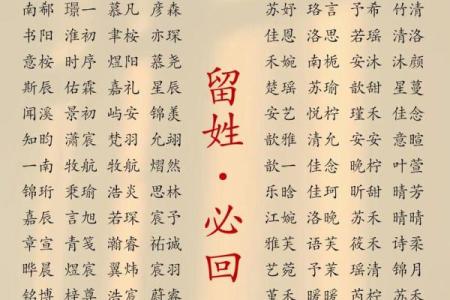 南郗 璟一 慕凡 彦森
书阳 淮初 聿桉 亦琛
意桉 时序 煜阳 慕尧
斯辰 佑霖 嘉礼 星辰
闻溪 景初 屿安 锦羡
知昀 潇宸 梵羽 允翊
一南 牧航 牧航 熠然
锦珩 秉瑜 浩炎 思林
嘉辰 言旭 若琛 宸予
章宣 青笺 瀚睿 祐诚
晔晨 煜宸 翼炜 宸羽
铭博 梓宸 蔚睿
留姓·必回
苏妤 珞言 予希 竹清
佳恩 洛思 若瑶 沐洛
禾婉 南栀 苏禾 沐颜
楚瑶 星蔓
安艺 悦柠 瑾禾 佳念
歆雅 清允 安安 意暄
歆一 佳念 晚柠 叶萱
乐晗 佳珂 昕甜 芳晴
江婉 洛晚 苏苏 晴晴
雅芙 语芙 筱禾 诗柔
艺菀 予茉 锦月
暖暖 芊禾